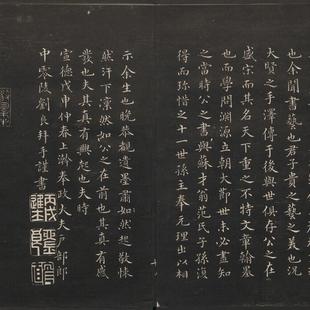 也余聞書藝也君子貴之藝之美也況
大賢之手澤傳于後與世俱存公之在
盛宋而其名天下重之不特文章翰墨
也而學問淵源立朝大節世未必盡知
之當時公之書與蘇才翁范氏子孫
得而珍惜之十一世孫主奉元理出以相
示余生也晚恭觀遺墨肅如然起敬悚
然汗下凜然如公之在前也其真有感
發也夫其真有興起也夫時
宣德戊申仲春上澣奉政大夫戶部郎
中零陵劉良拜手謹書